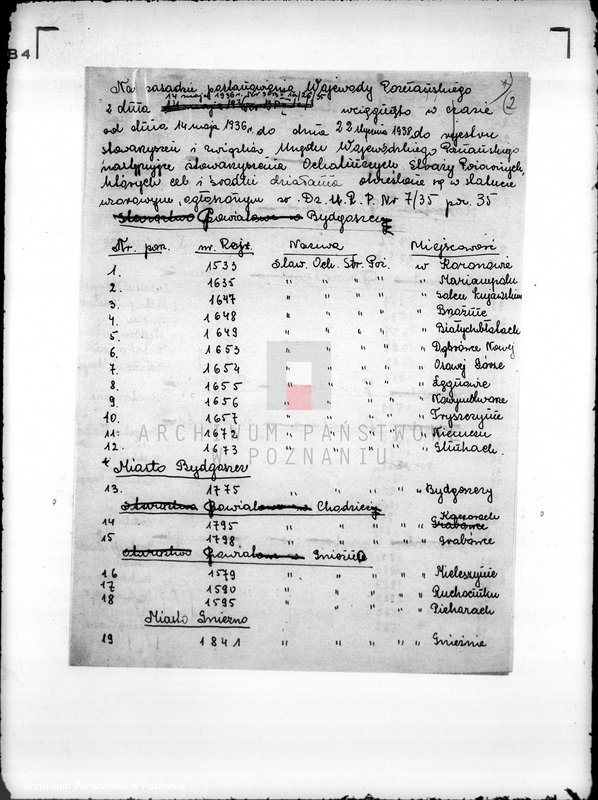 Na zasadzie postanowienia Wojewody Poznańskiego
z dnia 14 maja 1936 r. wciągnięto w czasie
od dnia 14 maja 1936 r. do dnia 22 stycznia 1938, do rejestru
stowarzyszeń i związków Urzędu Wojewódzkiego Poznańskiego
następujące stowarzyszenia Ochotniczych Straży Pożarnych,
których cel i środki działania określone są w statucie
wzorowym, ogłoszonym w Dz. U. R. P. Nr 7/35 poz. 35
(2
Starostwo Powiatowe w Bydgoszczy
Nr. porz. nr. Rejr. Nazwa Miejscowość
1. 1533 Staw. Och. Str. Poż. w Koronowie
2. 1635 " " " " " Mariampolu
3. 1647 " " " " "
4. 1648 " " " " "
5. 1649 " " " " " Białychbłotach
6. 1653 " " " " " Dąbrówce Nowej
7. 1654 " " " " " Osowej Górze
8. 1655 " " " " " Łęgnowie
9. 1656 " " " " "
10. 1657 " " " " " Tryszczynie
11. 1672 " " " " " Niemczu
12. 1673 " " " " "
Miasto Bydgoszcz
13. 1775 " " " " " Bydgoszczy
Starostwo Powiatowe w Chodzieży
14 1795 " " " " " Grabówce Kaczorach
15 1798 " " " " " Grabówce
Starostwo Powiatowe w Gnieźnie
16 1579 " " " " " Mieleszynie
17 1590 " " " " " Ruchocinku
18 1595 " " " " "
Miasto Gniezno
19 1841 " " " " " Gnieźnie
B4
ARCHIWUM PAŃSTWOWE
W POZNANIU
Archiwum Państwowe w Poznaniu